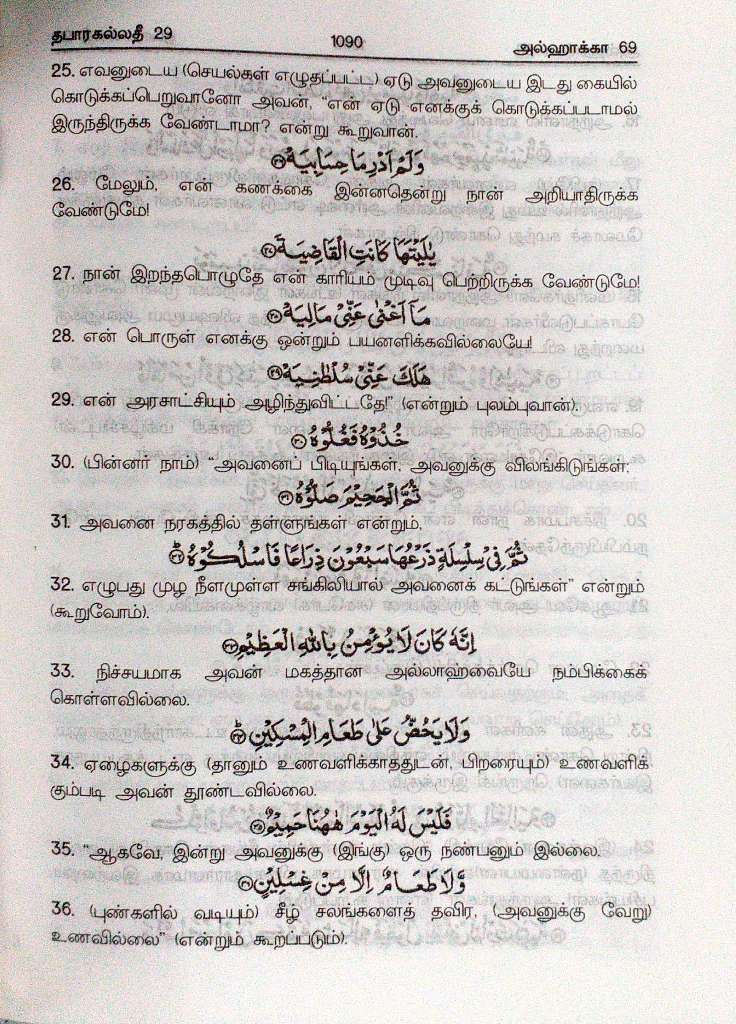 தபாரகல்லதீ 29 1090 அல்ஹாக்கா 69
25. எவனுடைய (செயல்கள் எழுதப்பட்ட) ஏடு அவனுடைய இடது கையில்
கொடுக்கப்பெறுவானோ அவன், “என் ஏடு எனக்குக் கொடுக்கப்படாமல்
இருந்திருக்க வேண்டாமா? என்று கூறுவான்.
وَلَمْ اَدْرِ مَا حِسَابِيَهْ ﴿٢٦﴾
26. மேலும், என் கணக்கை இன்னதென்று நான் அறியாதிருக்க
வேண்டுமே!
يٰلَيْتَهَا كَانَتِ الْقَاضِيَةَ ﴿٢٧﴾
27. நான் இறந்தபொழுதே என் காரியம் முடிவு பெற்றிருக்க வேண்டுமே!
مَاۤ اَغْنٰى عَنِّىْ مَالِيَهْ ﴿٢٨﴾
28. என் பொருள் எனக்கு ஒன்றும் பயனளிக்கவில்லையே!
هَلَكَ عَنِّىْ سُلْطٰنِيَهْ ﴿٢٩﴾
29. என் அரசாட்சியும் அழிந்துவிட்டதே!” (என்றும் புலம்புவான்).
خُذُوْهُ فَغُلُّوْهُ ﴿٣٠﴾
30. (பின்னர் நாம்) “அவனைப் பிடியுங்கள். அவனுக்கு விலங்கிடுங்கள்.
ثُمَّ الْجَحِيْمَ صَلُّوْهُ ﴿٣١﴾
31. அவனை நரகத்தில் தள்ளுங்கள் என்றும்,
ثُمَّ فِىْ سِلْسِلَةٍ ذَرْعُهَا سَبْعُوْنَ ذِرَاعًا فَاسْلُكُوْهُ ﴿٣٢﴾
32. எழுபது முழ நீளமுள்ள சங்கிலியால் அவனைக் கட்டுங்கள்” என்றும்
(கூறுவோம்).
اِنَّهٗ كَانَ لَا يُؤْمِنُ بِاللّٰهِ الْعَظِيْمِ ﴿٣٣﴾
33. நிச்சயமாக அவன் மகத்தான அல்லாஹ்வையே நம்பிக்கைக்
கொள்ளவில்லை.
وَلَا يَحُضُّ عَلٰى طَعَامِ الْمِسْكِيْنِ ﴿٣٤﴾
34. ஏழைகளுக்கு (தானும் உணவளிக்காததுடன், பிறரையும்) உணவளிக்
கும்படி அவன் தூண்டவில்லை.
فَلَيْسَ لَهُ الْيَوْمَ هٰهُنَا حَمِيْمٌ ﴿٣٥﴾
35. “ஆகவே, இன்று அவனுக்கு (இங்கு) ஒரு நண்பனும் இல்லை.
وَّلَا طَعَامٌ اِلَّا مِنْ غِسْلِيْنٍ ﴿٣٦﴾
36. (புண்களில் வடியும்) சீழ் சலங்களைத் தவிர, (அவனுக்கு வேறு)
உணவில்லை” (என்றும் கூறப்படும்).